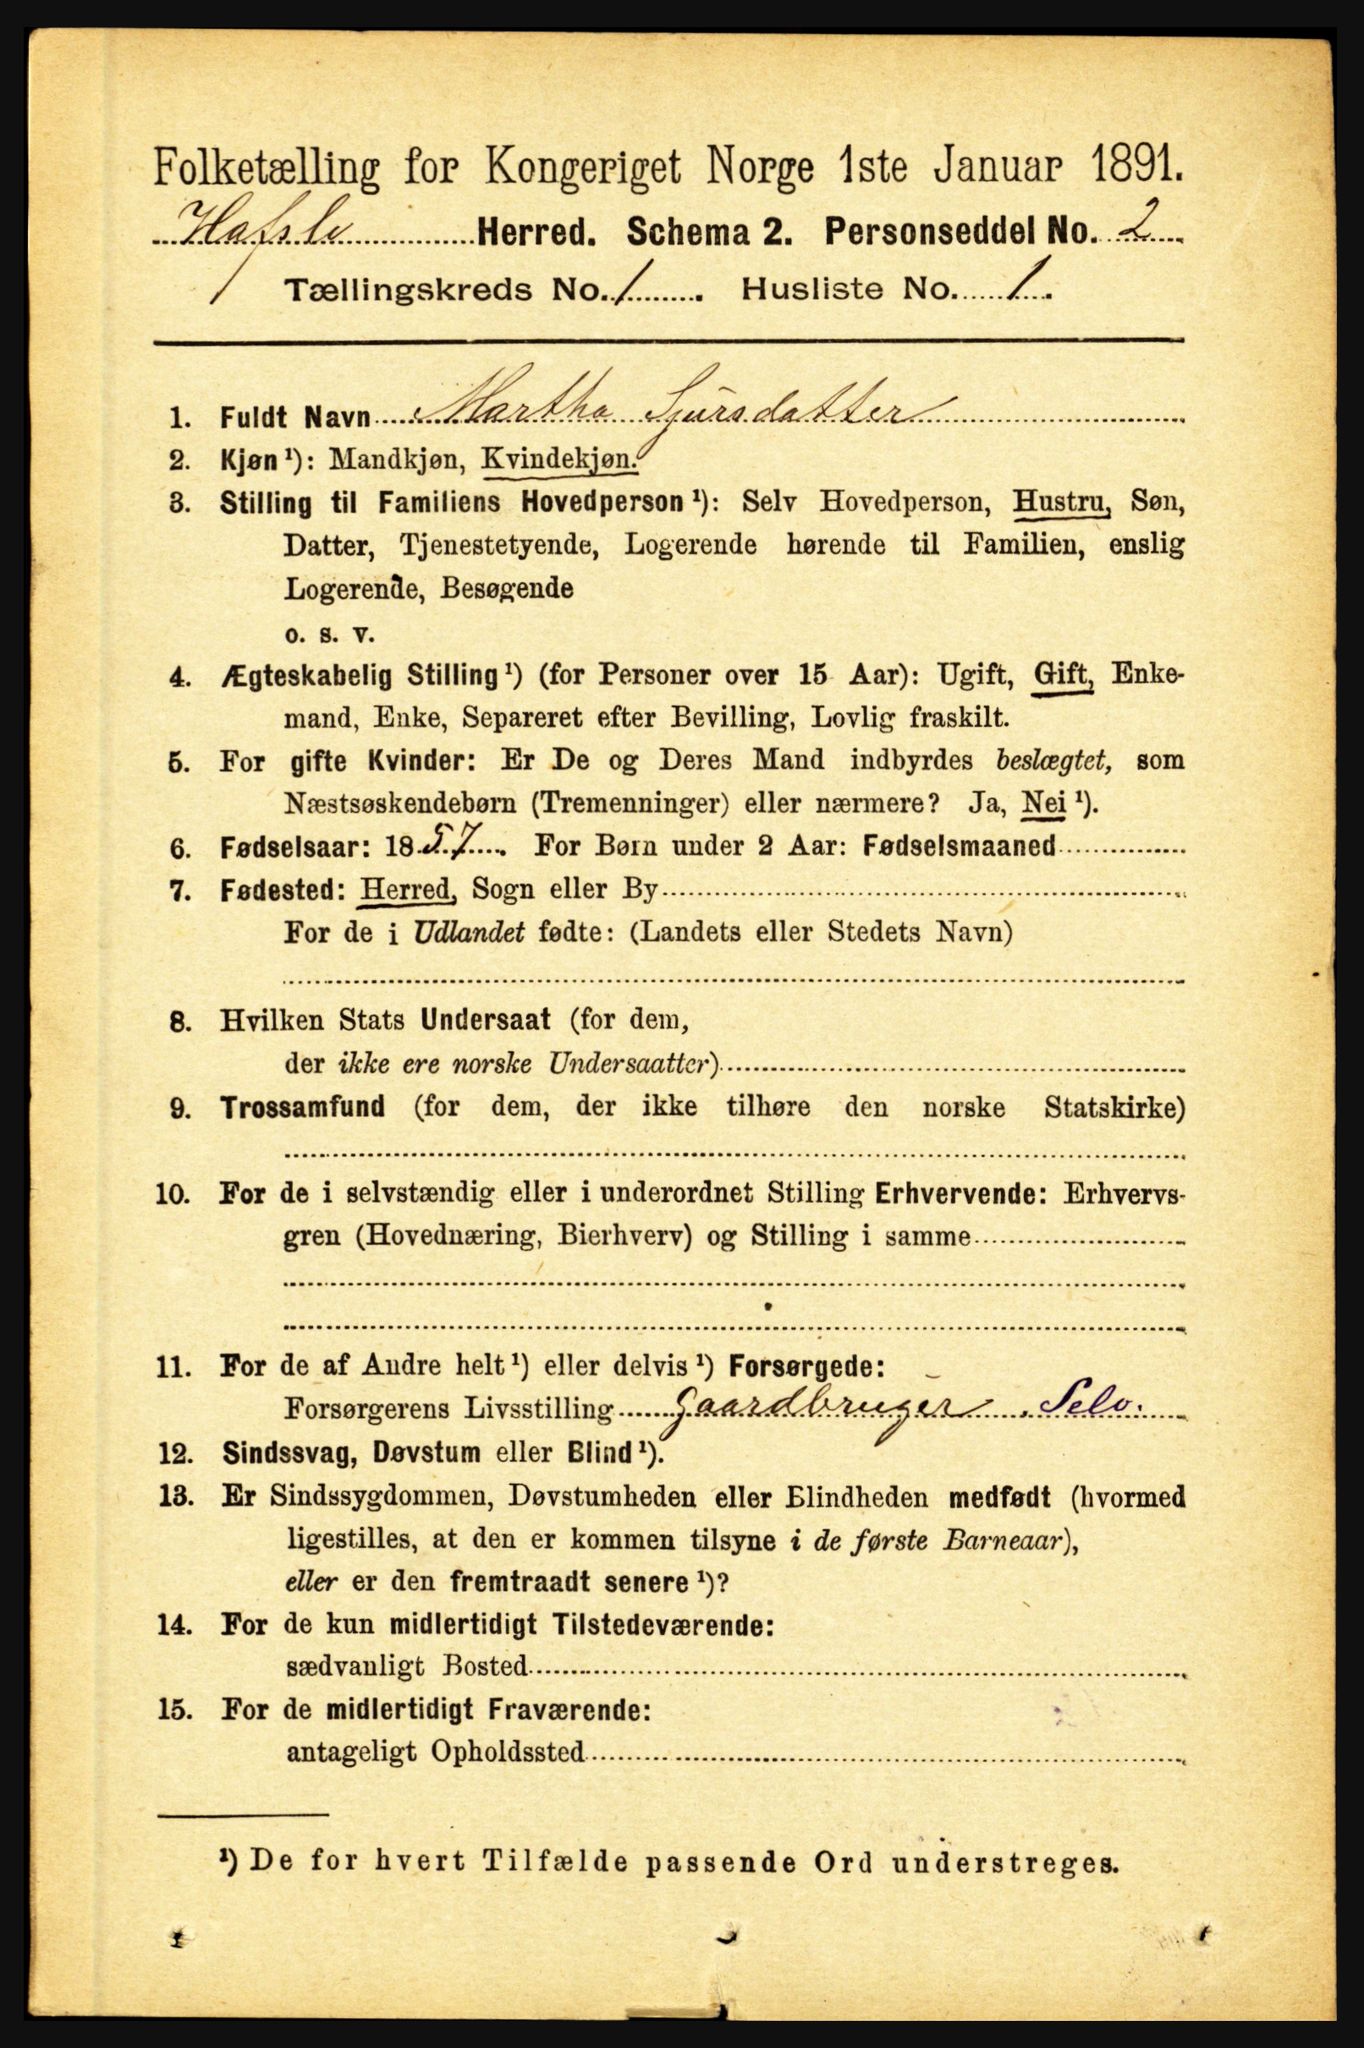 Folketælling for Kongeriget Norge 1ste Januar 1891.
Hafslo Herred. Schema 2. Personseddel No. 2
Tællingskreds No. 1. Husliste No. 1.
1. Fuldt Navn Martha Sjursdatter
2. Kjøn¹): Mandkjøn, Kvindekjøn.
3. Stilling til Familiens Hovedperson¹): Selv Hovedperson, Hustru, Søn,
Datter, Tjenestetyende, Logerende hørende til Familien, enslig
Logerende, Besøgende
o. s. v.
4. Ægteskabelig Stilling¹) (for Personer over 15 Aar): Ugift, Gift, Enke-
mand, Enke, Separeret efter Bevilling, Lovlig fraskilt.
5. For gifte Kvinder: Er De og Deres Mand indbyrdes beslægtet, som
Næstsøskendebørn (Tremenninger) eller nærmere? Ja, Nei¹).
6. Fødselsaar: 1857. For Børn under 2 Aar: Fødselsmaaned
7. Fødested: Herred, Sogn eller By
For de i Udlandet fødte: (Landets eller Stedets Navn)
8. Hvilken Stats Undersaat (for dem,
der ikke ere norske Undersaatter)
9. Trossamfund (for dem, der ikke tilhøre den norske Statskirke)
10. For de i selvstændig eller i underordnet Stilling Erhvervende: Erhvervs-
gren (Hovednæring, Bierhverv) og Stilling i samme
11. For de af Andre helt¹) eller delvis¹) Forsørgede:
Forsørgerens Livsstilling Gaardbruger Selv.
12. Sindssvag, Døvstum eller Blind¹).
13. Er Sindssygdommen, Døvstumheden eller Blindheden medfødt (hvormed
ligestilles, at den er kommen tilsyne i de første Barneaar),
eller er den fremtraadt senere¹)?
14. For de kun midlertidigt Tilstedeværende:
sædvanligt Bosted
15. For de midlertidigt Fraværende:
antageligt Opholdssted
¹) De for hvert Tilfælde passende Ord understreges.